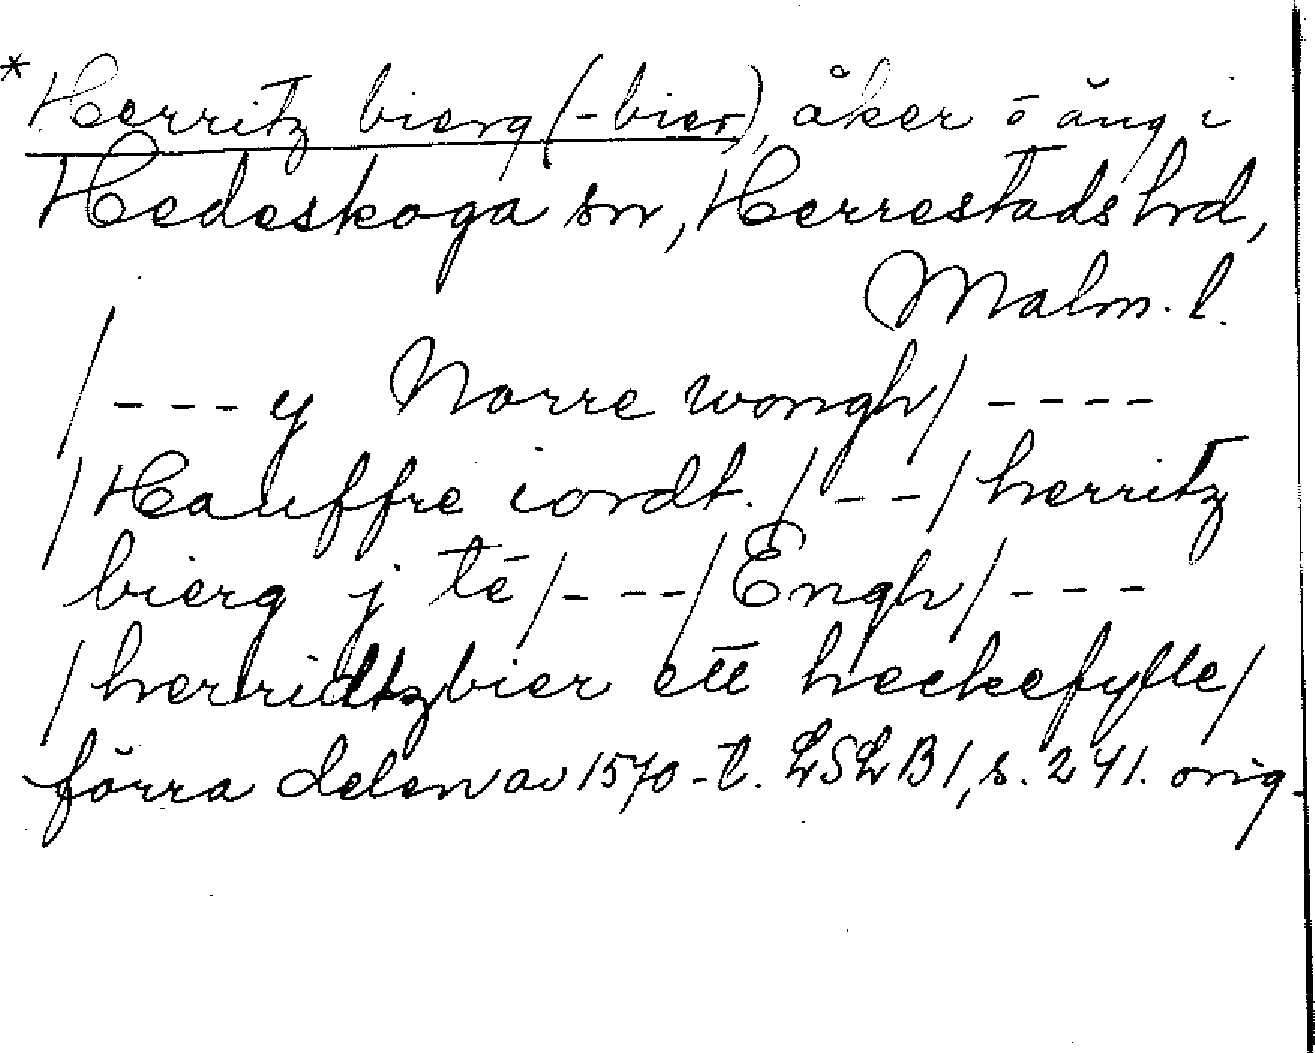 *Herritz bierg (-bier), åker o äng i
Hedeskoga sn, Herrestads hrd,
Malm. l.
/ - - - y Norre wongh / - - - -
/ Hauffre iordt. / - - / herritz
bierg j tē / - - - / Engh / - - -
/ herridtzbier ett heckefylle /
förra delen av 1570-t. LSLB 1, s. 241. orig.